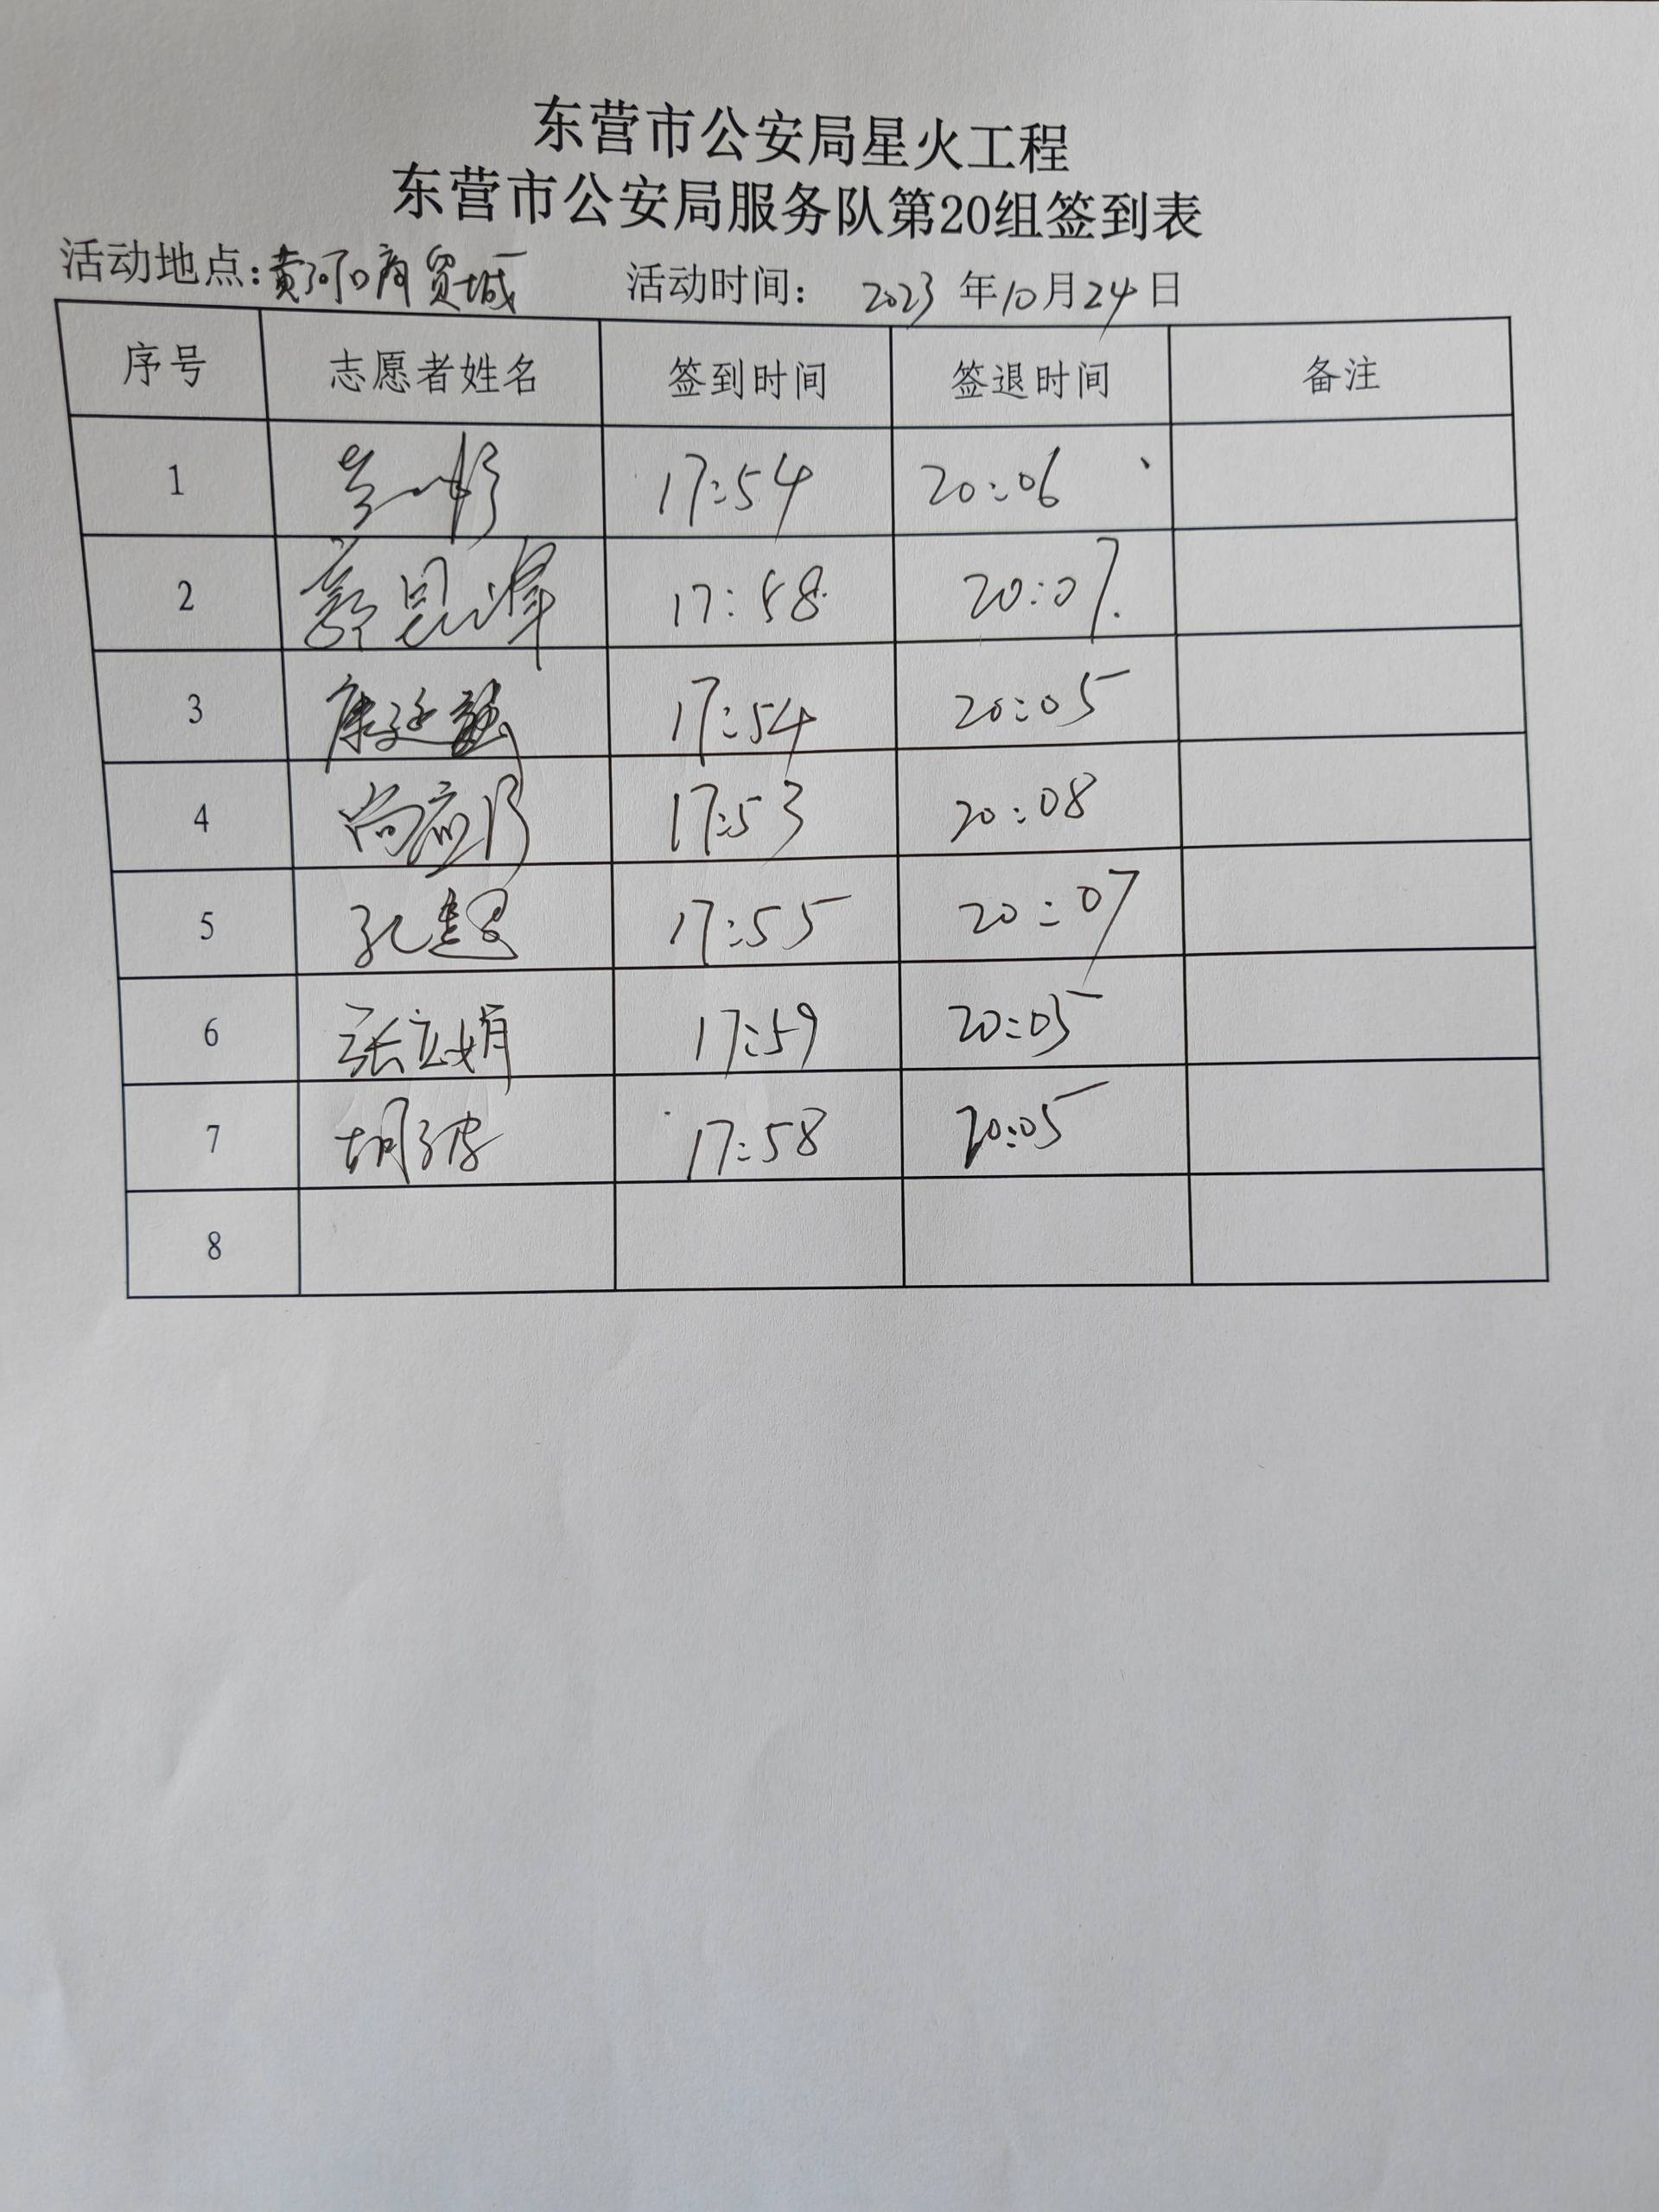 东营市公安局星火工程
东营市公安局服务队第20组签到表
活动地点:黄河口商贸城 活动时间: 2023 年10月24日
序号 志愿者姓名 签到时间 签退时间 备注
1 17:54 20:06
2 17:58 20:07
3 17:54 20:05
4 尚 17:53 20:08
5 孔超 17:55 20:07
6 张立娟 17:59 20:05
7 胡 17:58 20:05
8